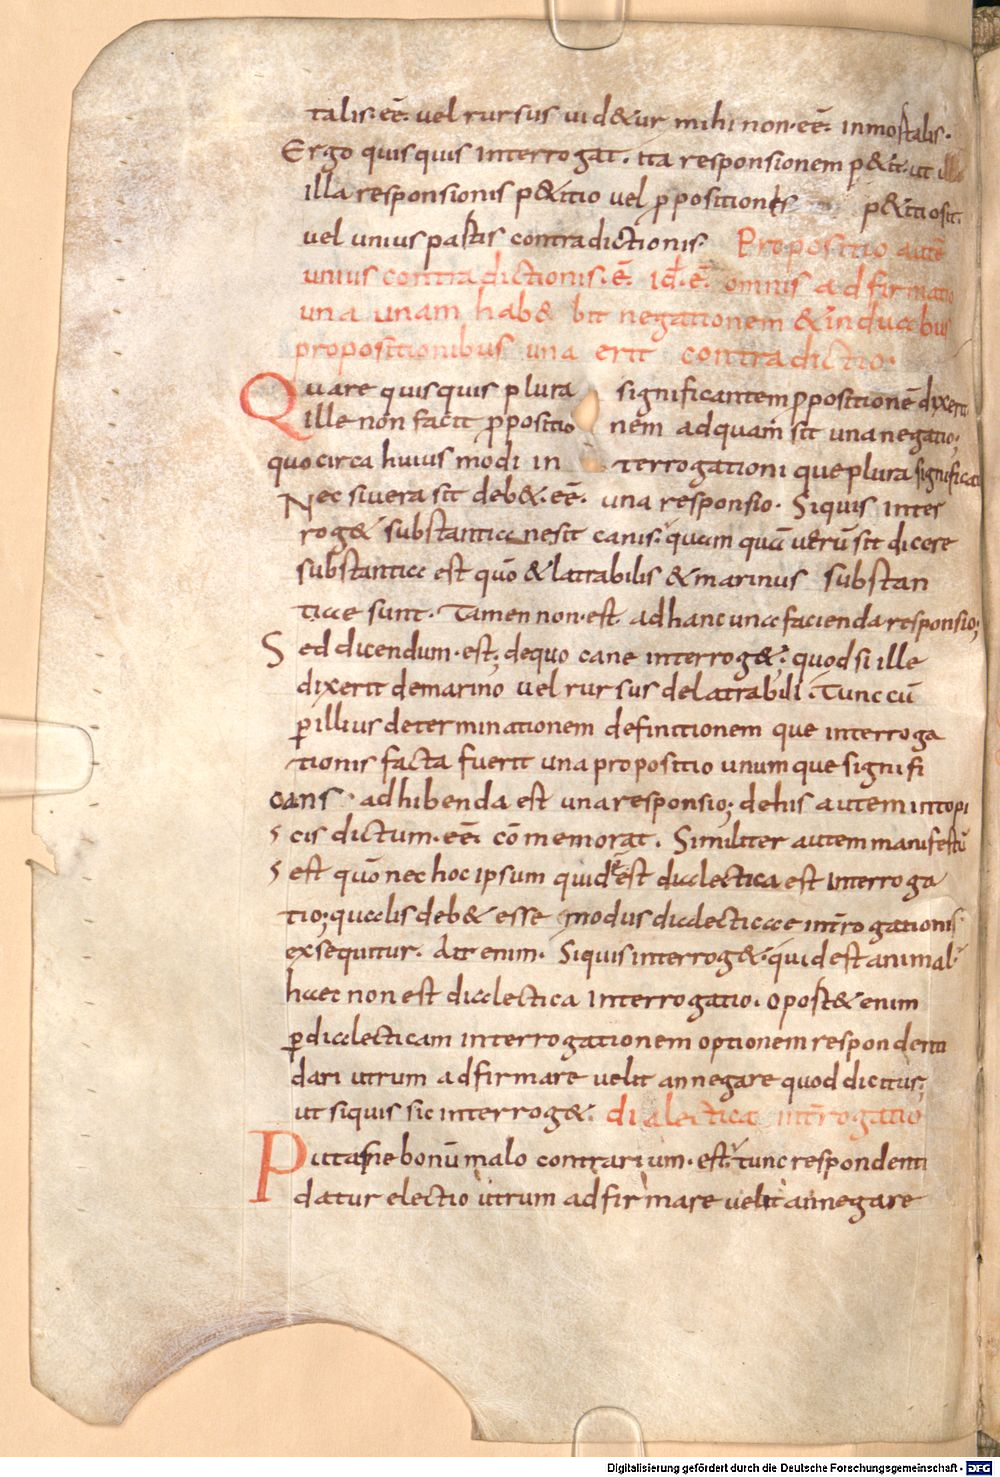 talis·eē· vel rursus uid&ur mihi non·eē· inmortalis·
Ergo quisquis interrogat· ita responsionem p&it· ut
illa responsionis p&itio vel ꝓpositionis p&itio sit
vel unius partis contradictionis· Propositio autē
unius contradictionis·ē· id·ē· omnis adfirmatio
una unam hab& bit negationem & in duabus
propositionibus una erit contradictio·
Quare quisquis plura significantem ꝓpositionē dixerit
ille non facit ꝓpositio nem ad quam sit una negatio;
quocirca huius modi in terrogationi que plura significat
Nec si vera sit deb&·eē· una responsio· Siquis inter
rog& substantia nesit canis· quam quā uerū sit dicere
substantia est quō & latrabilis & marinus substan
tiae sunt· Tamen non·est· ad hanc una facienda responsio;
Sed dicendum·est; de quo cane interrog&; quod si ille
dixerit de marino vel rursus de latrabili· Tunc cū
ꝑ illius determinationem definitionem que interroga
tionis facta fuerit una propositio unum que signifi
cans· adhibenda est una responsio; de his autem in topi
cis dictum·eē· cōmemorat· Similiter autem manifestū
est quōnec hoc ipsum quid est dialectica est interroga
tio; qualis deb& esse modus dialecticae int̄rogationis
exsequitur· At enim· Siquis interrog&· quid est animal·
haec non est dialectica interrogatio· oport& enim
ꝑ dialecticam interrogationem optionem respondenti
dari utrum adfirmare velit an negare quod dicitur;
ut siquis sic interrog&· dialectica int̄rogatio
Putasne bonū malo contrarium·est· tunc respondenti
datur electio utrum adfirmare velit an negare
Digitalisierung gefördert durch die Deutsche Forschungsgemeinschaft - DFG